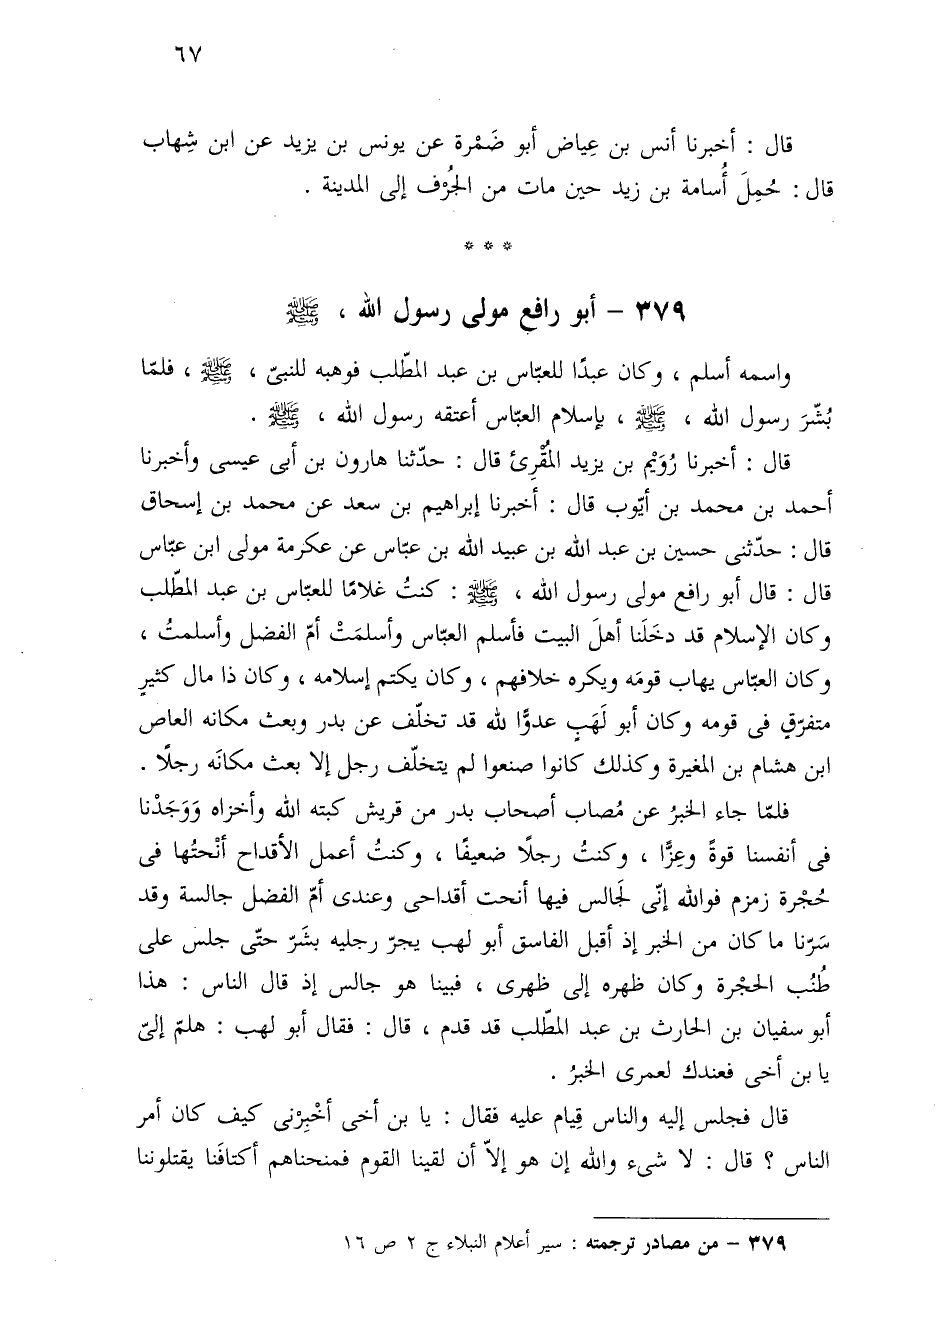 ٦٧
قال : أخبرنا أنس بن عِياض أبو ضَمْرة عن يونس بن يزيد عن ابن شِهاب
قال : حُمِلَ أُسامة بن زيد حين مات من الجُرْف إلى المدينة .
* * *
٣٧٩ – أبو رافع مولى رسول الله ، ﷺ
واسمه أسلم ، وكان عبدًا للعبّاس بن عبد المطّلب فوهبه للنبىّ ، ﷺ ، فلمّا
بُشّرَ رسول الله ، ﷺ ، بإسلام العبّاس أعتقه رسول الله ، ﷺ .
قال : أخبرنا رُوَيْم بن يزيد المُقْرِئ قال : حدّثنا هارون بن أبى عيسى وأخبرنا
أحمد بن محمد بن أيّوب قال : أخبرنا إبراهيم بن سعد عن محمد بن إسحاق
قال : حدّثنى حسين بن عبد الله بن عبيد الله بن عبّاس عن عكرمة مولى ابن عبّاس
قال : قال أبو رافع مولى رسول الله ، ﷺ : كنتُ غلامًا للعبّاس بن عبد المطّلب
وكان الإسلام قد دخَلَنا أهلَ البيت فأسلم العبّاس وأسلمَتْ أمّ الفضل وأسلمتُ ،
وكان العبّاس يهاب قومَه ويكره خلافهم ، وكان يكتم إسلامه ، وكان ذا مال كثيرٍ
متفرّقٍ فى قومه وكان أبو لَهَبٍ عدوًّا لله قد تخلّف عن بدر وبعث مكانه العاص
ابن هشام بن المغيرة وكذلك كانوا صنعوا لم يتخلّف رجل إلا بعث مكانَه رجلًا .
فلمّا جاء الخبرُ عن مُصاب أصحاب بدر من قريش كبته الله وأخزاه وَوَجَدْنا
فى أنفسنا قوةً وعِزًّا ، وكنتُ رجلًا ضعيفًا ، وكنتُ أعمل الأقداح أنْحتُها فى
حُجْرة زمزم فوالله إنّى لَجالس فيها أنحت أقداحى وعندى أمّ الفضل جالسة وقد
سَرّنا ما كان من الخبر إذ أقبل الفاسق أبو لهب يجرّ رجليه بشَرّ حتّى جلس على
طُنُب الحجْرة وكان ظهره إلى ظهرى ، فبينا هو جالس إذ قال الناس : هذا
أبو سفيان بن الحارث بن عبد المطّلب قد قدم ، قال : فقال أبو لهب : هلمّ إلىّ
يا بن أخى فعندك لعمرى الخبرُ .
قال فجلس إليه والناس قِيام عليه فقال : يا بن أخى أخْبِرْنى كيف كان أمر
الناس ؟ قال : لا شىء والله إن هو إلاّ أن لقينا القوم فمنحناهم أكتافَنا يقتلوننا
٣٧٩ – من مصادر ترجمته : سير أعلام النبلاء ج ٢ ص ١٦